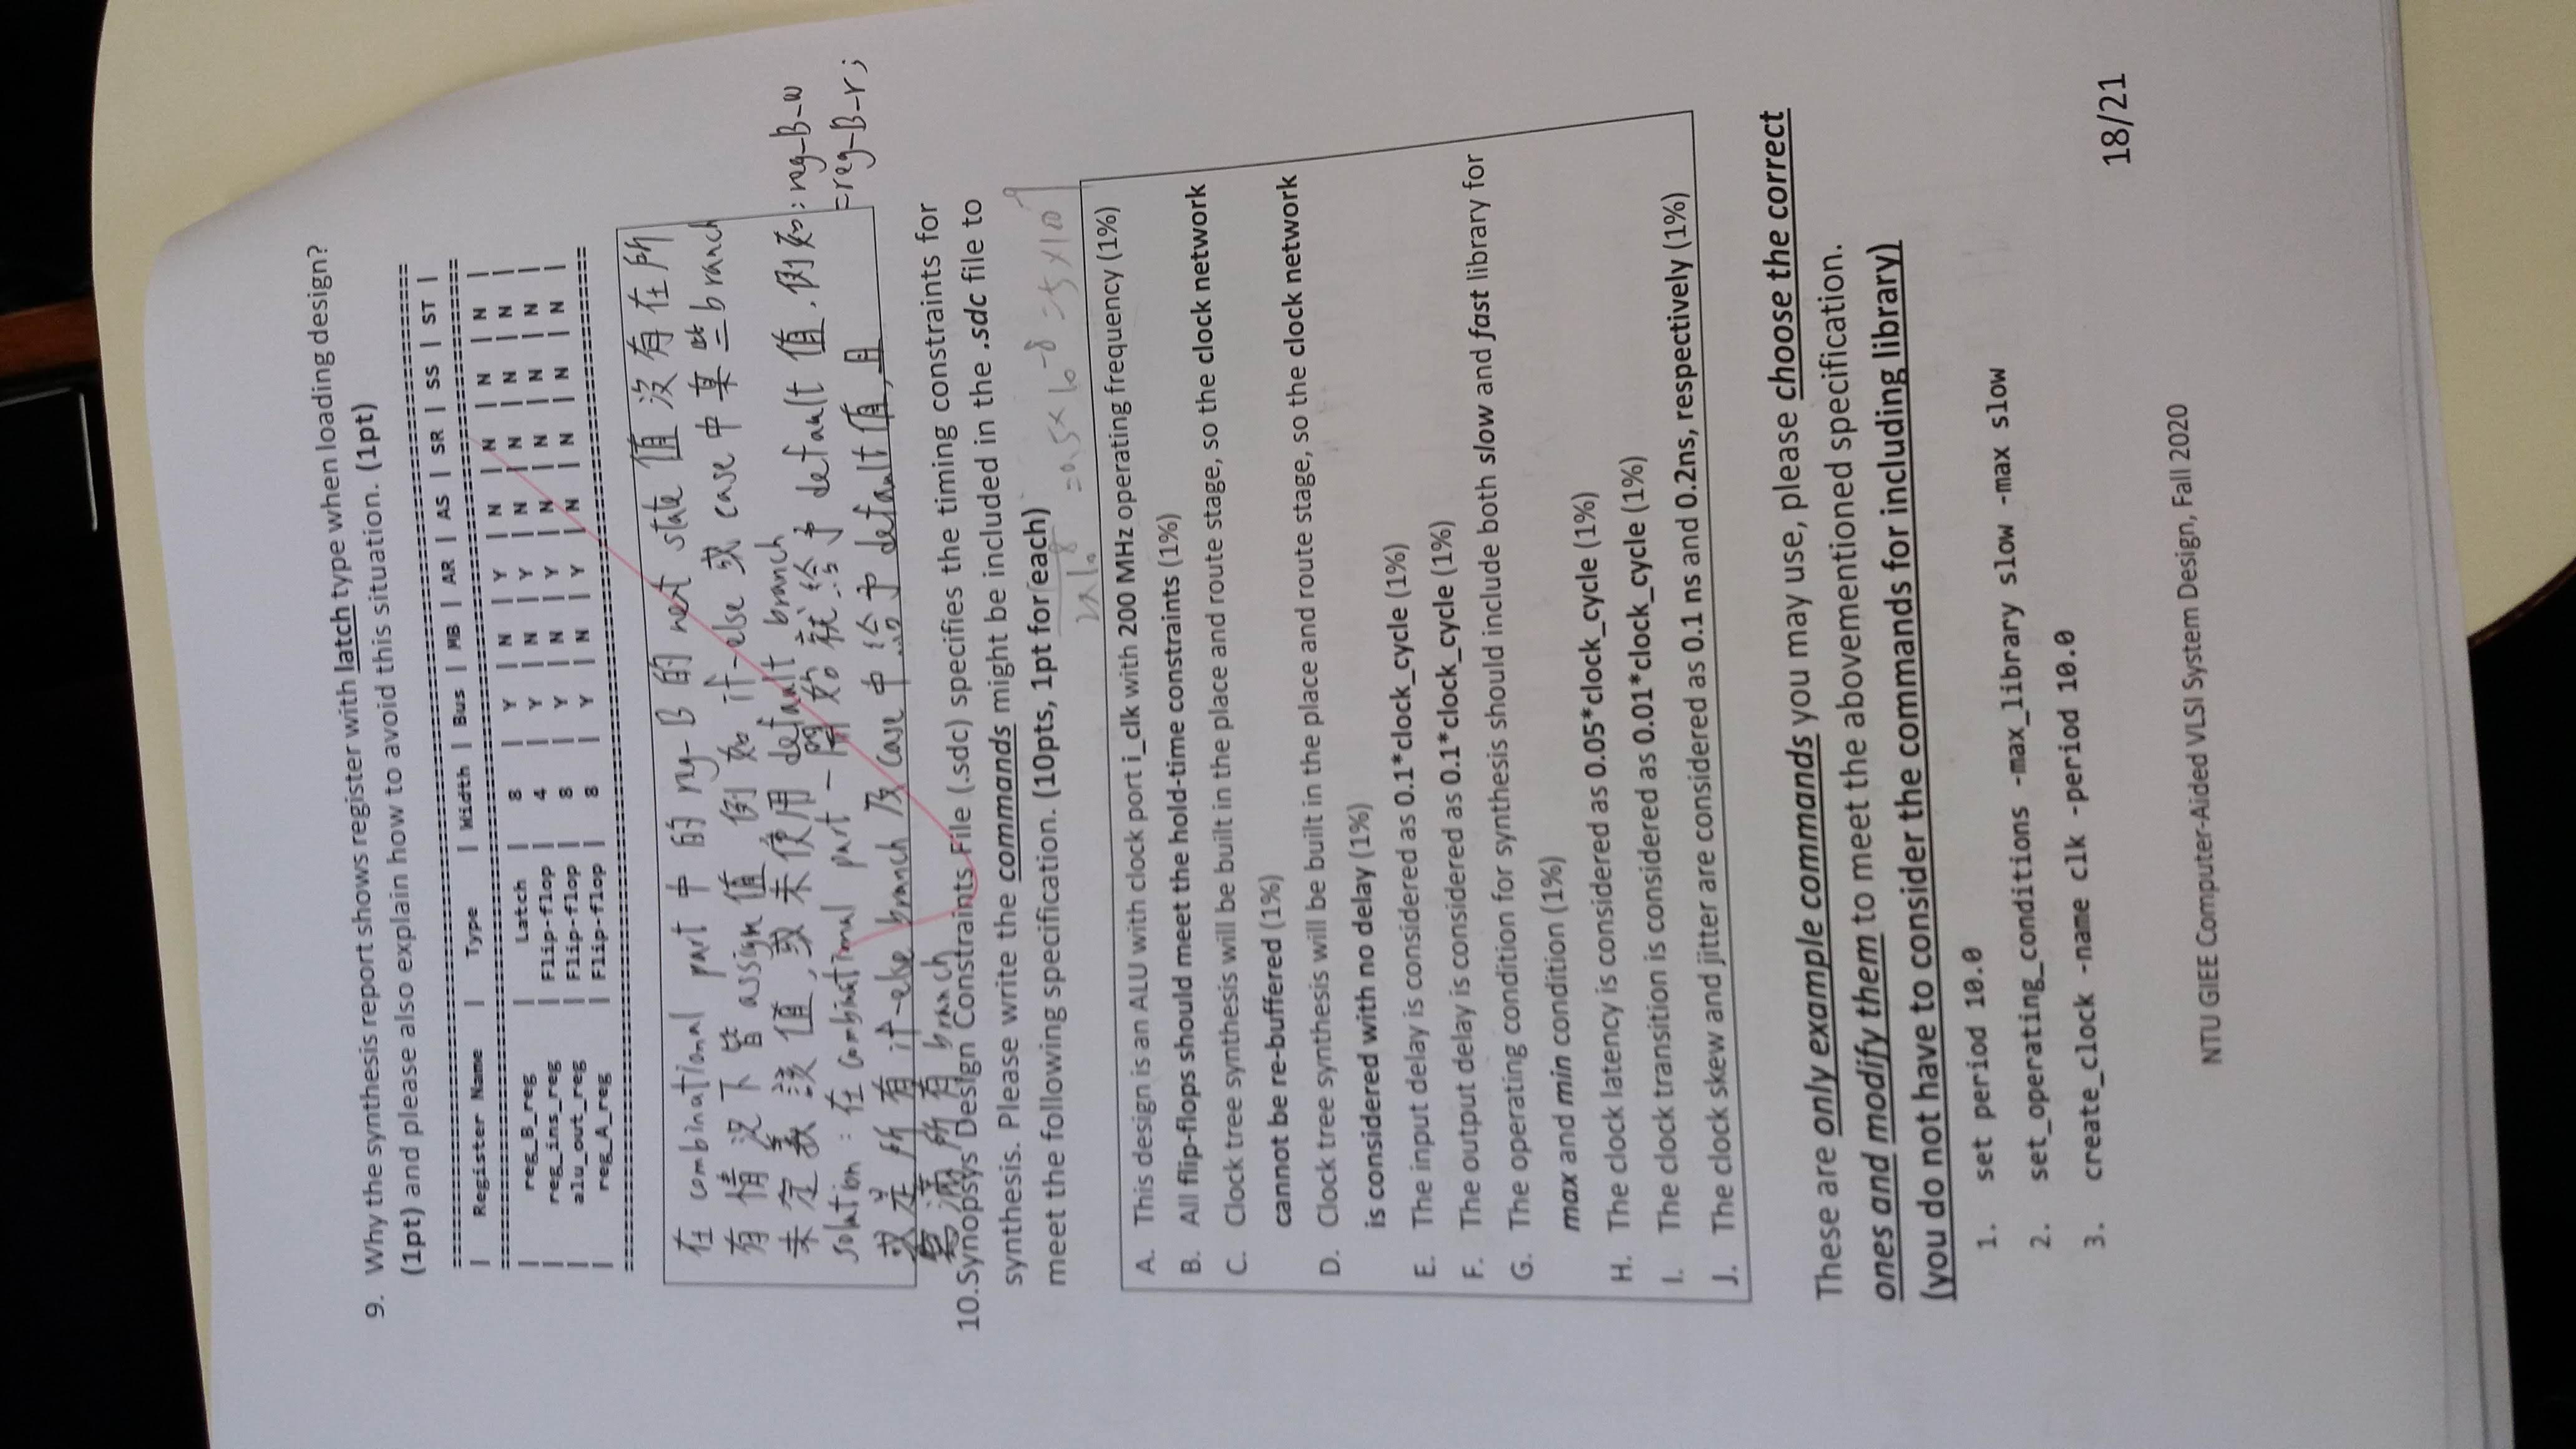 9. Why the synthesis report shows register with latch type when loading design?
(1pt) and please also explain how to avoid this situation. (1pt)
===============================================================================
| Register Name | Type | Width | Bus | MB | AR | AS | SR | SS | ST |
===============================================================================
| reg_B_reg | Latch | 8 | Y | N | Y | N | N | N | N |
| reg_ins_reg | Flip-flop | 4 | Y | N | Y | N | N | N | N |
| alu_out_reg | Flip-flop | 8 | Y | N | Y | N | N | N | N |
| reg_A_reg | Flip-flop | 8 | Y | N | Y | N | N | N | N |
===============================================================================
在 combinational part 中的 reg-B 的 next state 值沒有在所
有情況下皆 assign 值, 例如 if-else 或 case 中某些 branch
未定義該值, 或未使用 default branch
solution : 在 combinational part 一開始就給予 default 值, 例如: reg-B-w
=reg-B-r;
或是所有 if-else branch 及 case 中給予 default 值, 且
寫滿所有 branch
10.Synopsys Design Constraints File (.sdc) specifies the timing constraints for
synthesis. Please write the commands might be included in the .sdc file to
meet the following specification. (10pts, 1pt for each)
2×10^8 =0.5×10^-8 =5×10^-9
A. This design is an ALU with clock port i_clk with 200 MHz operating frequency (1%)
B. All flip-flops should meet the hold-time constraints (1%)
C. Clock tree synthesis will be built in the place and route stage, so the clock network
cannot be re-buffered (1%)
D. Clock tree synthesis will be built in the place and route stage, so the clock network
is considered with no delay (1%)
E. The input delay is considered as 0.1*clock_cycle (1%)
F. The output delay is considered as 0.1*clock_cycle (1%)
G. The operating condition for synthesis should include both slow and fast library for
max and min condition (1%)
H. The clock latency is considered as 0.05*clock_cycle (1%)
I. The clock transition is considered as 0.01*clock_cycle (1%)
J. The clock skew and jitter are considered as 0.1 ns and 0.2ns, respectively (1%)
These are only example commands you may use, please choose the correct
ones and modify them to meet the abovementioned specification.
(you do not have to consider the commands for including library)
1. set period 10.0
2. set_operating_conditions -max_library slow -max slow
3. create_clock -name clk -period 10.0
18/21
NTU GIEE Computer-Aided VLSI System Design, Fall 2020